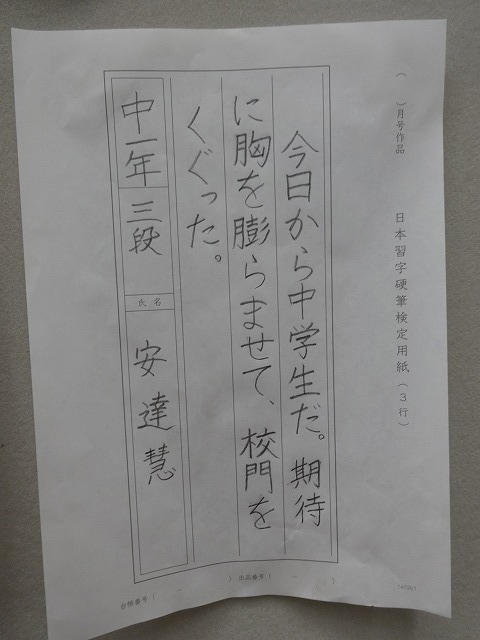 （　　）月号作品
日本習字硬筆検定用紙（３行）
今日から中学生だ。期待
に胸を膨らませて、校門を
くぐった。
中一年 三段
氏名
安達慧
台帳番号（　－　）出品番号（　－　）